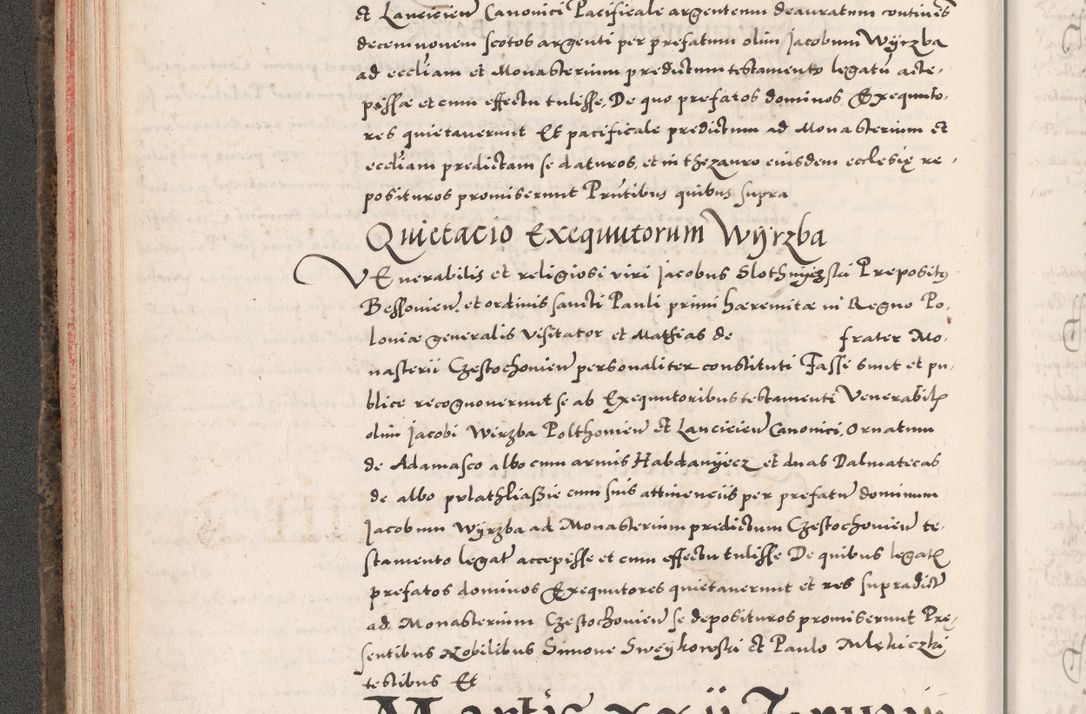 et Lancicien Canonici Pacificale argenteum deauratum continens
decem novem scotos argenti per prefatum olim Jacobum Wyrzba
ad eccliam et Monasterium predictum testamento legatu acce-
pisse et cum effectu tulisse, De quo prefatos dominos Exequuto-
res quietaverunt Et pacificale predictum ad Monasterium et
eccliam predictam se daturos, et in thezauro eiusdem ecclesię re-
posituros promiserunt Prntibus quibus supra
Quietacio Exequutorum Wyrzba
VEnerabilis et religiosi viri Jacobus Slothnyczski Prepositus
Bessovien et ordinis sancti Pauli primi haeremitae in Regno Po-
loniae generalis visitator et Mathias de frater Mo-
nasterii Czestochovien personaliter constituti Fassi sunt et pu-
blice recognoverunt se ab Exequutoribus testamenti Venerabilis
olim Jacobi Wirzba Polthovien et Lancicien Canonici, Ornatum
de Adamasco albo cum armis Habdanyecz et duas Dalmatecas
de albo pulathliaszie cum suis attinenciis per prefatum dominum
Jacobum Wyrzba ad Monasterium predictum Czestochovien te-
stamento legat accepisse et cum effectu tulisse De quibus legatis
prefatos dominos Exequutores quietaverunt et res supradict
ad Monasterium Czestochovien se deposituros promiserunt Pre-
sentibus Nobilibus Simone Sweykowski et Paulo Mlękiczki
testibus Et
Martis xxii Januarii